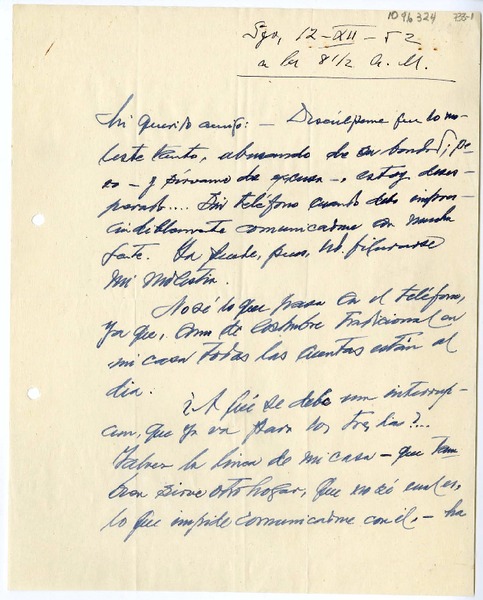 1096324 733-1
Sgo, 12-XII-52
a las 8 1/2 A. M.
Mi querido amigo: — Discúlpeme que lo mo-
leste tanto, abusando de su bondad; pe-
ro — y sírvame de excusa —, estoy deses-
perado.... Sin teléfono cuando debo impres-
cindiblemente comunicarme con mucha
gente. Ud puede, pues, figurarse
mi molestia.
No sé lo que pasa en el teléfono,
ya que, como de costumbre tradicional en
mi casa todas las cuentas están al
día.
¿A qué se debe una interrup-
ción, que ya va para los tres días?...
Talvez la línea de mi casa — que tam
bien sirve otro hogar, que no sé cual es,
lo que impide comunicarme con él, — ha